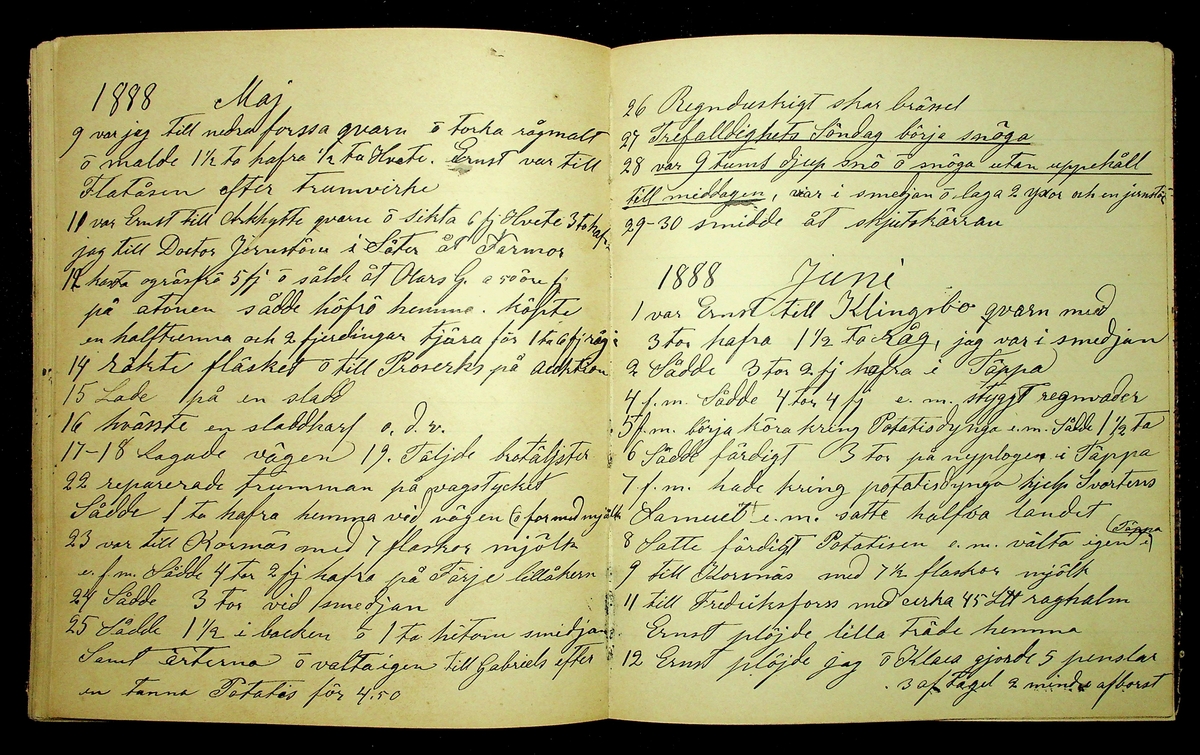 1888 Maj
9 var jag till nedra forssa qvarn ö torka rågmalt
ö malde 1½ ta hafra ½ ta Hvete. Ernst var till
Flatåsen efter trumvirke
11 var Ernst till qvarn ö sikta 6 fj Hvete 3 to hafra
jag till Doctor Jernström i Säter åt Farmor
12 ogräsfrö 5 fj ö sålde åt Olars G. a 50 öre fj
på atönen sådde höfrö hemma. köpte
en halftunna och 2 fjerdingar tjära för 1 ta 6 fj råg
14 rökte fläsket ö till Proserks på Auktion
15 Lade på en sladd
16 hvässte en sladdharf o. d. v.
17-18 Lagade vägen 19. Täljde brotäljster
22 reparerade trumman på vagstycket
Sådde 1 ta hafra hemma vid vägen (ö for med mjölk
23 var till Kormäs med 7 flaskor mjölk
e. f. m. Sådde 4 tor 2 fj hafra på Tärje lillåkern
24 Sådde 3 tor vid smedjan
25 Sådde 1½ i backen ö 1 ta hitom smidjan
Samt ärterna ö valta igen till Gabriels efter
en tunna Potatis för 4.50
26 Regnduskigt skar brässel
27 Trefalldighets Söndag börja snöga
28 var 9 tums djup snö ö snöga utan uppehåll
till middagen, var i smedjan ö laga 2 yxor och en jernstör
29-30 smidde åt skjutskärran
1888 Juni
1 var Ernst till Klingsbo qvarn med
3 tor hafra 1½ ta råg, jag var i smedjan
2 Sådde 3 tor 2 fj hafra i Täppa
4 f. m. Sådde 4 tor 4 fj e. m. styggt regnväder
5 f. m. börja köra kring Potatisdynga e. m. Sådde 1½ ta
6 Sådde färdigt 3 tor på nyplogen i Täppa
7 f. m. hade kring potatisdynga hjelp Svartens
Samuel e. m. satte halfva landet
8 Satte färdigt Potatisen e. m. välta igen i Täppa
9 till Kormäs med 7½ flaskor mjölk
11 till Fredriksforss med cirka 45 L℔ råghalm
Ernst plöjde lilla träde hemma
12 Ernst plöjde jag ö Klara gjorde 5 penslar
3 af Tagel 2 mindre af borst